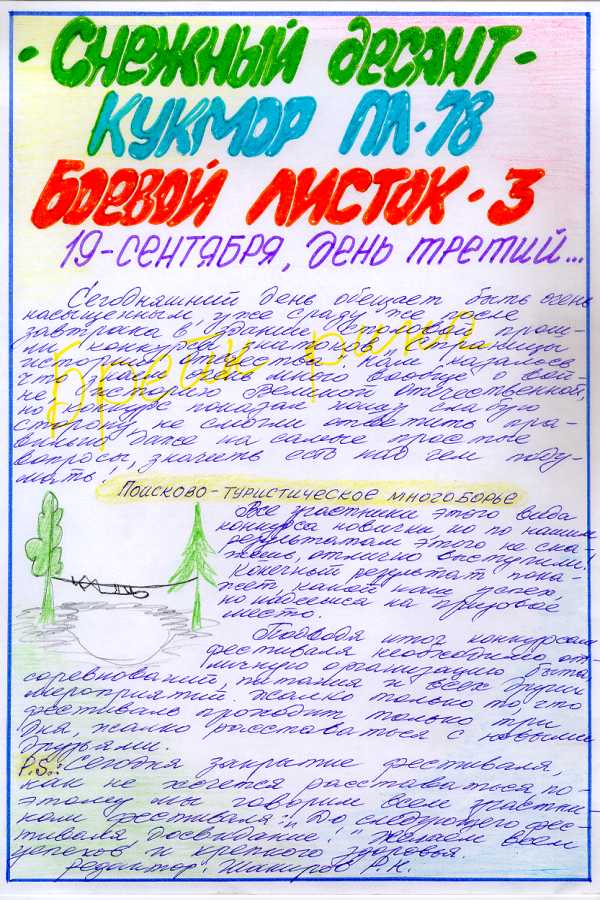 - Снежный десант -
Кукмор ПЛ-78
Боевой листок - 3
19-сентября, день третий...
Сегодняшний день обещает быть очень
насыщенным, уже сразу же после
завтрака в здании столовой прош-
ли конкурс знатоков "Страницы
истории отечества". Нам казалось
что знаем очень много вообще о вой-
не, историю Великой отечественной,
но конкурс показал нашу слабую
сторону, не смогли ответить пра-
вильно даже на самые простые
вопросы, значить есть над чем поду-
мать!
Брейн ринг
Поисково-туристическое многоборье
Все участники этого вида
конкурса новички но по нашим
результатам этого не ска-
жешь, отлично выступили!
Конечный результат пока-
жет какой наш успех,
но надеемся на призовое
место.
Подводя итог конкурсам
фестиваля необходимо от-
личную организацию быта,
соревнований, питания и всех других
мероприятий. Жалко только то что
фестиваль проходит только три
дня, жалко расставаться с новыми
друзьями.
P.S.: Сегодня закрытие фестиваля,
как не хочется расставаться по-
этому мы говорим всем участни-
кам фестиваля: "До следующего фес-
тиваля досвидание!" Желаем всем
успехов и крепкого здоровья.
редактор: Шакиров Р.К.